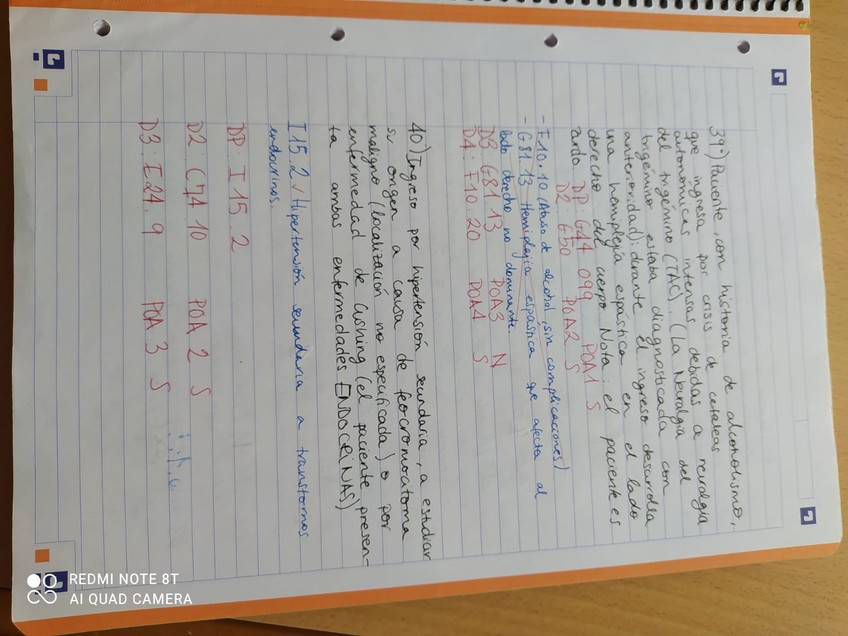 39.) Paciente, con historia de alcoholismo,
que ingresa por crisis de cefaleas
autonómicas intensas debidas a neuralgia
del trigémino (TAC). (La Neuralgia del
trigémino estaba diagnosticada con
anterioridad); durante el ingreso desarrolla
una hemiplejía espástica en el lado
derecho del cuerpo. Nota: el paciente es
zurdo
DP: G44 099 POA1 S
D2: G50 POA2 S
- F10.10 (Abuso de alcohol, sin complicaciones)
- G81.13 Hemiplejía espástica que afecta al
lado derecho no dominante.
D3 G81 13 POA3 N
D4: F10.20 POA4 S
40) Ingreso por hipertensión secundaria, a estudiar
su origen a causa de feocromocitoma
maligno (localización no especificada) o por
enfermedad de Cushing (el paciente presen-
ta ambas enfermedades ENDOCRINAS)
I15.2 Hipertensión secundaria a transtornos
endocrinos.
DP: I15.2
D2: C74 10 POA 2 S
D3: E24.9 POA 3 S
REDMI NOTE 8T
AI QUAD CAMERA